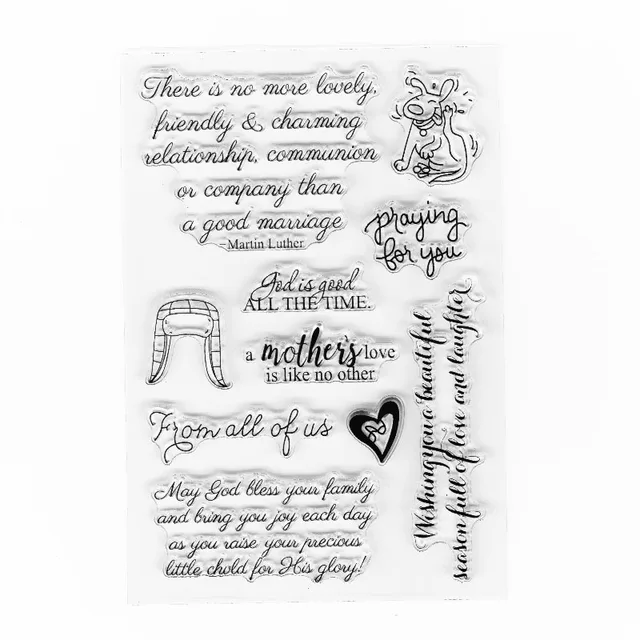 There is no more lovely,
friendly & charming
relationship, communion
or company than
a good marriage
~Martin Luther
praying
for you
God is good
ALL THE TIME.
a mother's love
is like no other
From all of us
Wishing you a beautiful
season full of love and laughter
May God bless your family
and bring you joy each day
as you raise your precious
little chold for His glory!